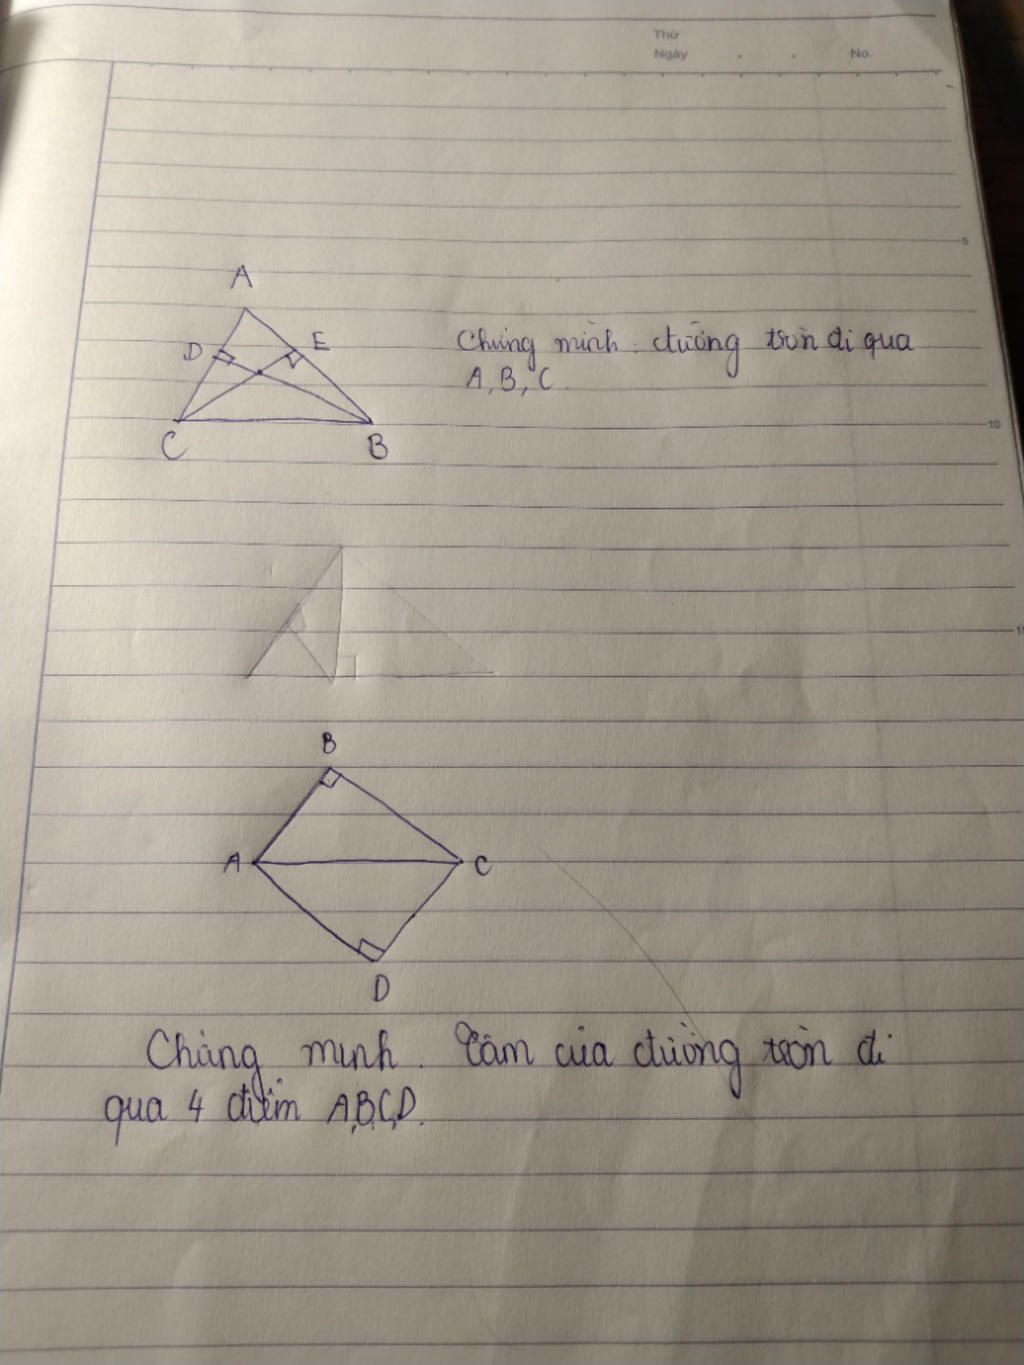 Thứ
Ngày . . No.
5
A
D E
Chứng minh: đường tròn đi qua
A, B, C.
10
C B
B
A C
D
Chứng minh. Tâm của đường tròn đi
qua 4 điểm A,B,C,D.